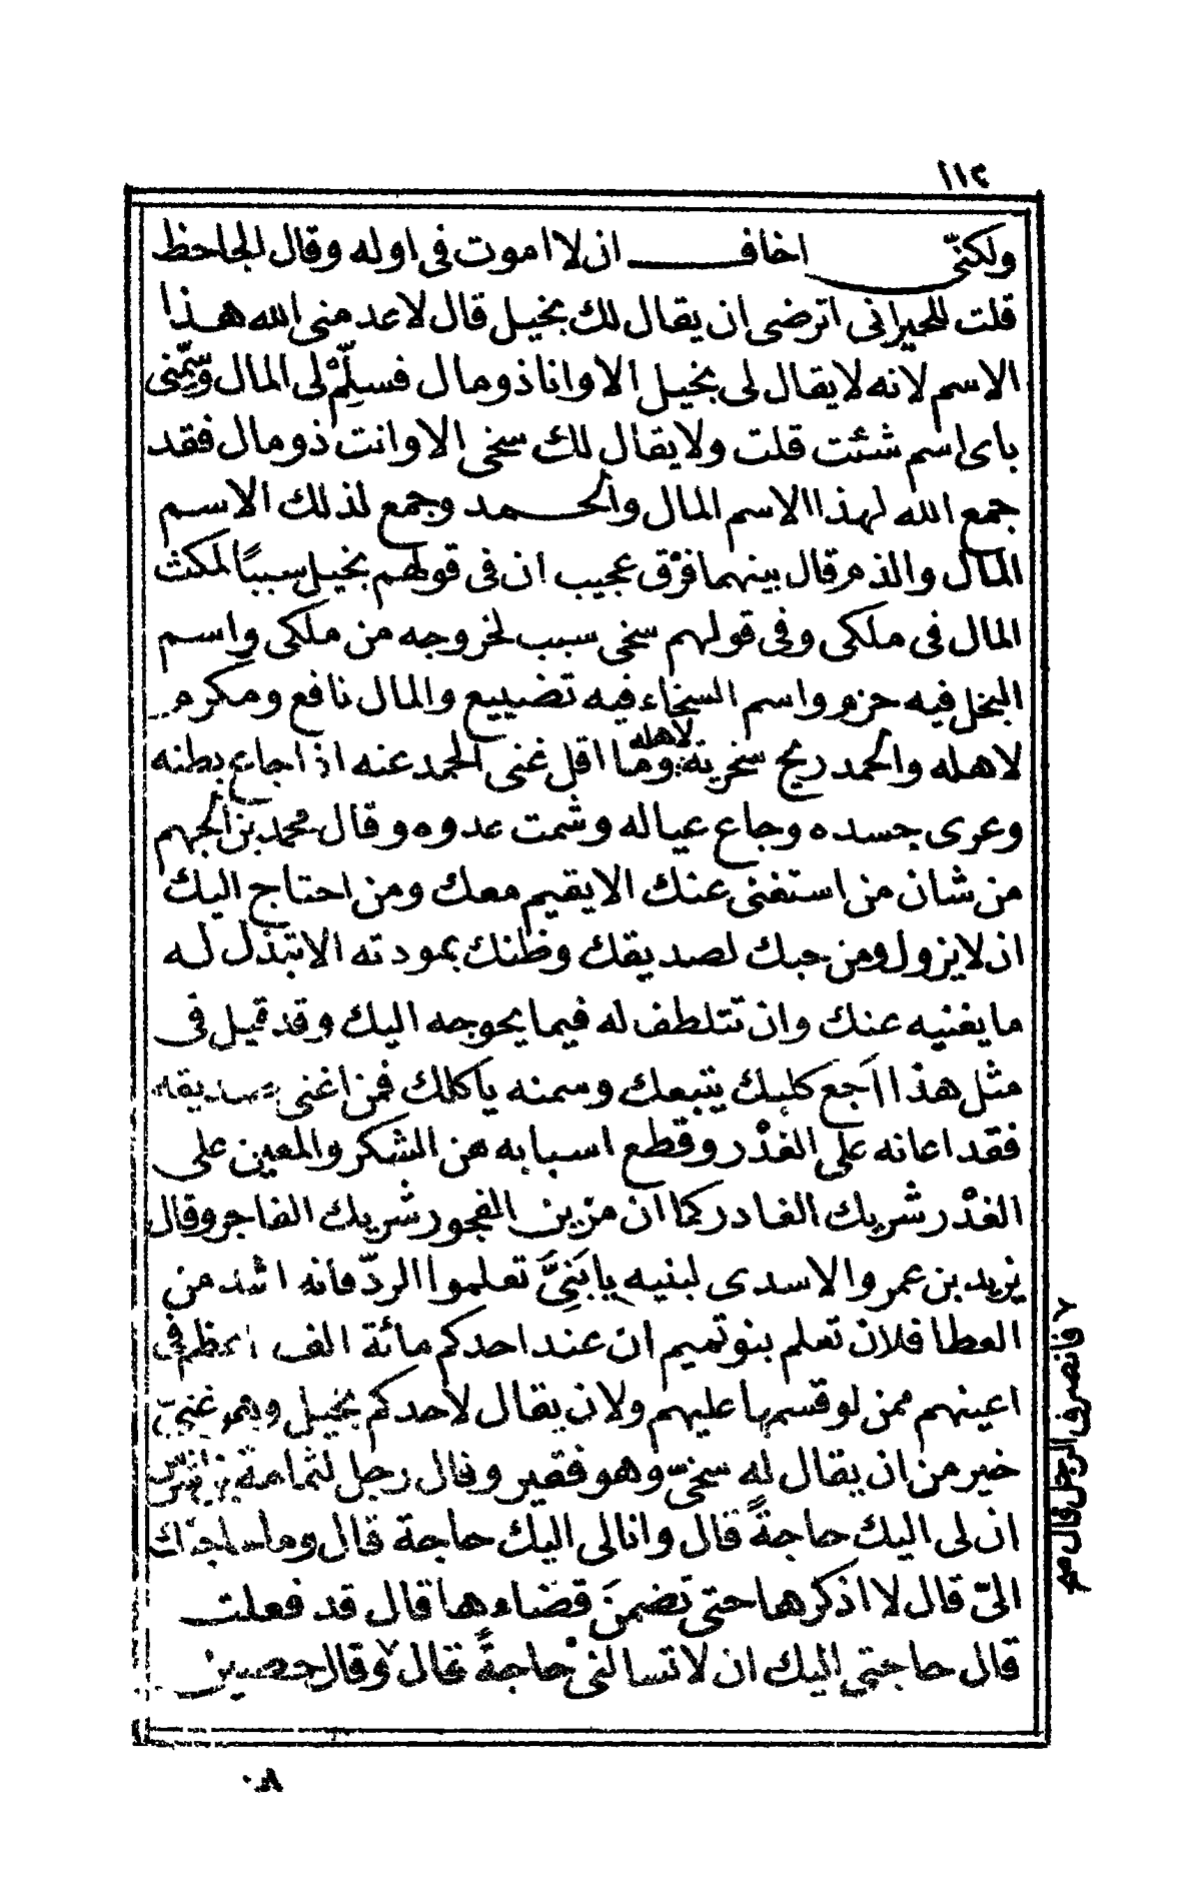 ١١٢
ولكنّى اخافـــــ ان لا اموت فى اوله وقال الجاحظ
قلت للحيرانى اترضى ان يقال لك بخيل قال لا عدمنى الله هذا
الاسم لانه لا يقال لى بخيل الا وانا ذو مال فسلِّمْ لى المال وسَمِّنى
باى اسم شئت قلت ولا يقال لك سخى الا وانت ذو مال فقد
جمع الله لهذا الاسم المال والحمد وجمع لذلك الاسم
المال والذم قال بينهما فرْق عجيب ان فى قولهم بخيل سببًا لمكث
المال فى ملكى وفى قولهم سخى سبب لخروجه من ملكى واسم
البخل فيه حزم واسم السخاء فيه تضييع والمال نافع ومكرم
لاهله والحمد ريح سخرية لاهله وما اقل غنى الحمد عنه اذا جاع بطنه
وعرى جسده وجاع عياله وشمت عدوه وقال محمد بن الجهم
من شان من استغنى عنك الا يقيم معك ومن احتاج اليك
ان لا يزول ومن حبك لصديقك وظنك بمودته الا تبذل له
ما يغنيه عنك وان تتلطف له فيما يحوجه اليك وقد قيل فى
مثل هذا اَجع كلبك يتبعك وسمنه ياكلك فمن اغنى صديقه
فقد اعانه على الغدْر وقطع اسبابه من الشكر والمعين على
الغدْر شريك الغادر كما ان مزين الفجور شريك الفاجر وقال
يزيد بن عمرو الاسدى لبنيه يا بَنِىَّ تعلموا الردّ فانه اشد من
العطا فلان تعلم بنو تميم ان عند احدكم مائة الف اعظم فى
اعينهم ممن لو قسم ما عليهم ولان يقال لاحدكم بخيل وهو غنىّ
خير من ان يقال له سخىّ وهو فقير وقال رجل لثمامة بن اشرس
ان لى اليك حاجةً قال وانا لى اليك حاجة قال وما حاجتك
الىّ قال لا اذكرها حتى تَضمنَ قضاءها قال قد فعلت
قال حاجتى اليك ان لا تسالنىْ حاجةً فقال ٧ وقال حصين
٧ فانصرف الرجل قال صح
٨٠